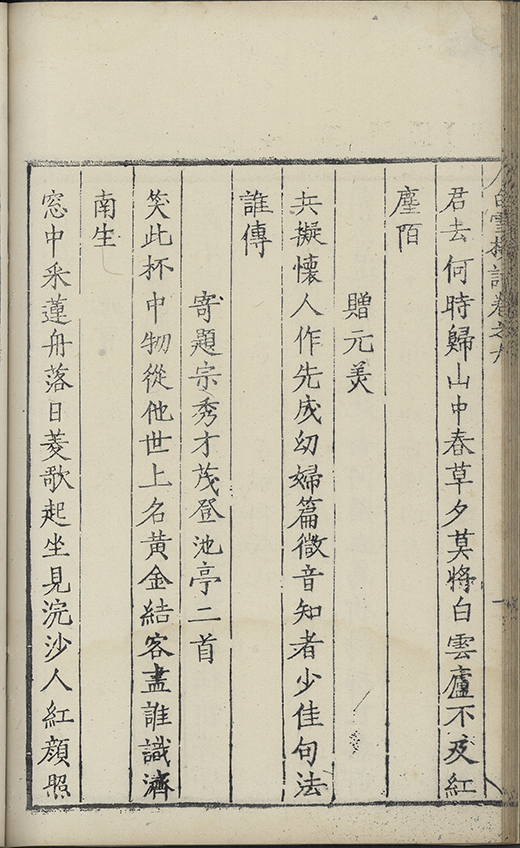 白雪樓詩卷之九
君去何時歸山中春草夕莫將白雲廬不及紅
塵陌
贈元美
共擬懷人作先成幼婦篇徵音知者少佳句法
誰傳
寄題宗秀才茂登池亭二首
笑此杯中物從他世上名黃金結客盡誰識濟
南生
窓中采蓮舟落日菱歌起坐見浣沙人紅顏照